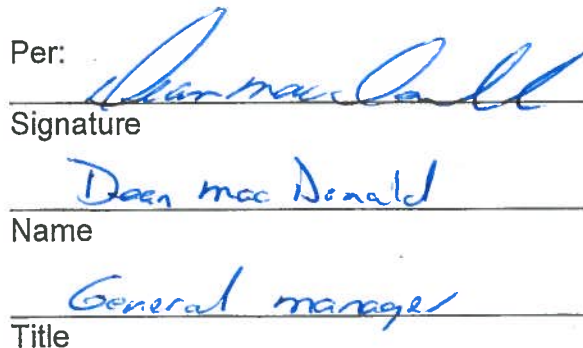 Per: Dean MacDonald
Signature
Dean Mac Donald
Name
General manager
Title